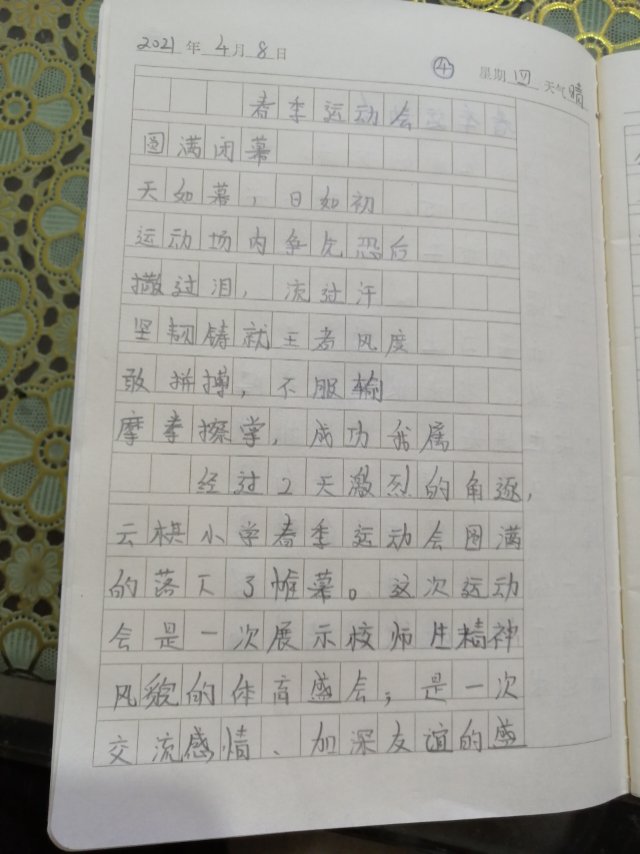 2021年4月8日 ④ 星期四 天气晴
春季运动会
圆满闭幕
天如幕，日如初
运动场内争先恐后
撒过泪，流过汗
坚韧铸就王者风度
敢拼搏，不服输
摩拳擦掌，成功我属
经过2天激烈的角逐，
云棋小学春季运动会圆满
的落下了帷幕。这次运动
会是一次展示校师生精神
风貌的体育盛会，是一次
交流感情、加深友谊的盛